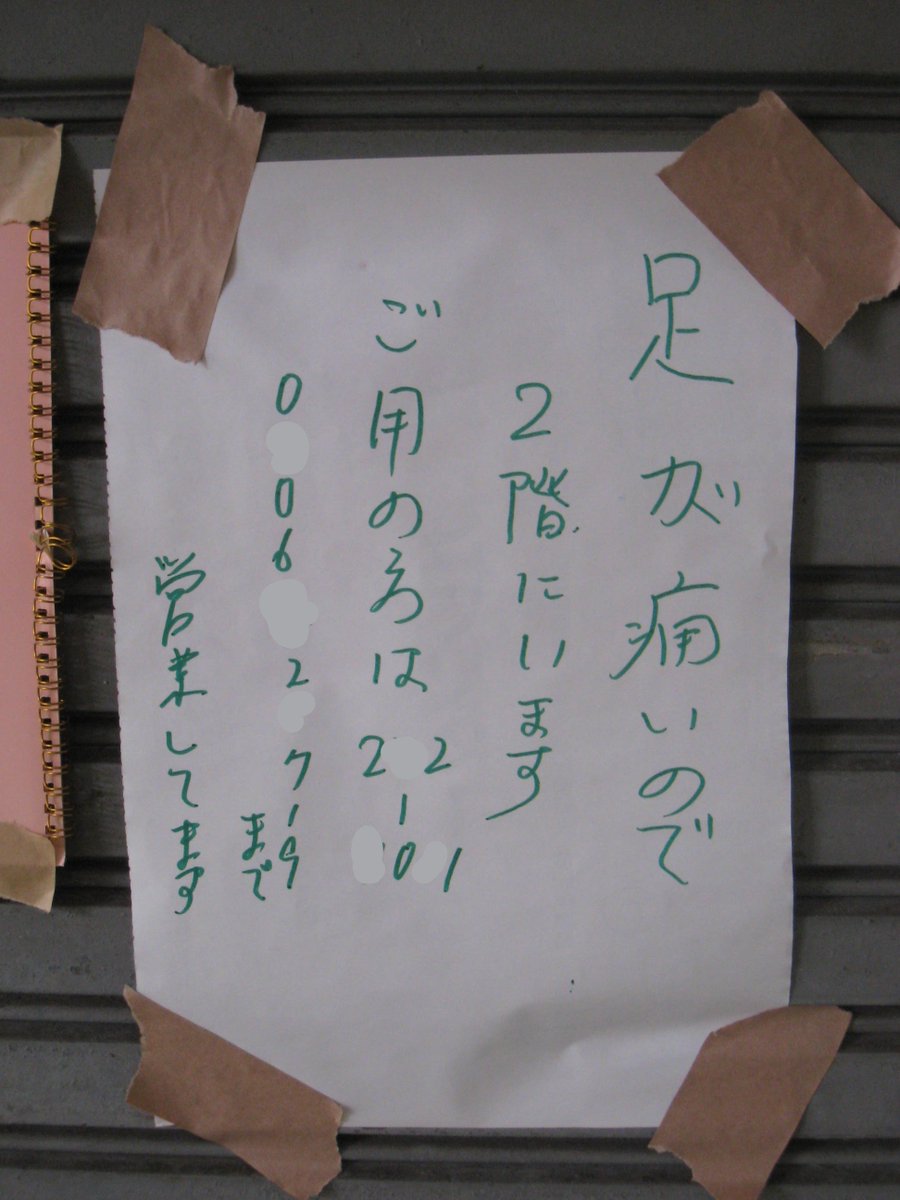 足が痛いので
2階にいます
ご用の方は2 2-0 1
0 06 2 719まで
営業してます